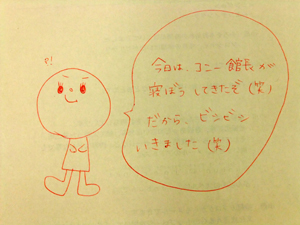 や!
今日は、ヨニー館長が
寝ぼうしてきたぞ(笑)
だから、ビシビシ
いきました(笑)